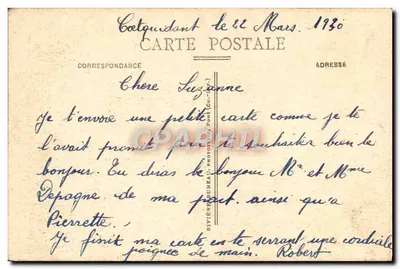 Coetquidant le 22 Mars 1930
CARTE POSTALE
CORRESPONDANCE
ADRESSE
Chere Suzanne
Je t'envoie une petite carte comme je te
l'avait promit pour te souhaiter bien le
bonjour. Tu diras le bonjour Mr et Mme
Depagne de ma part ainsi qu'a
Pierrette.
Je finit ma carte en te serrant une cordiale
poignee de main. Robert